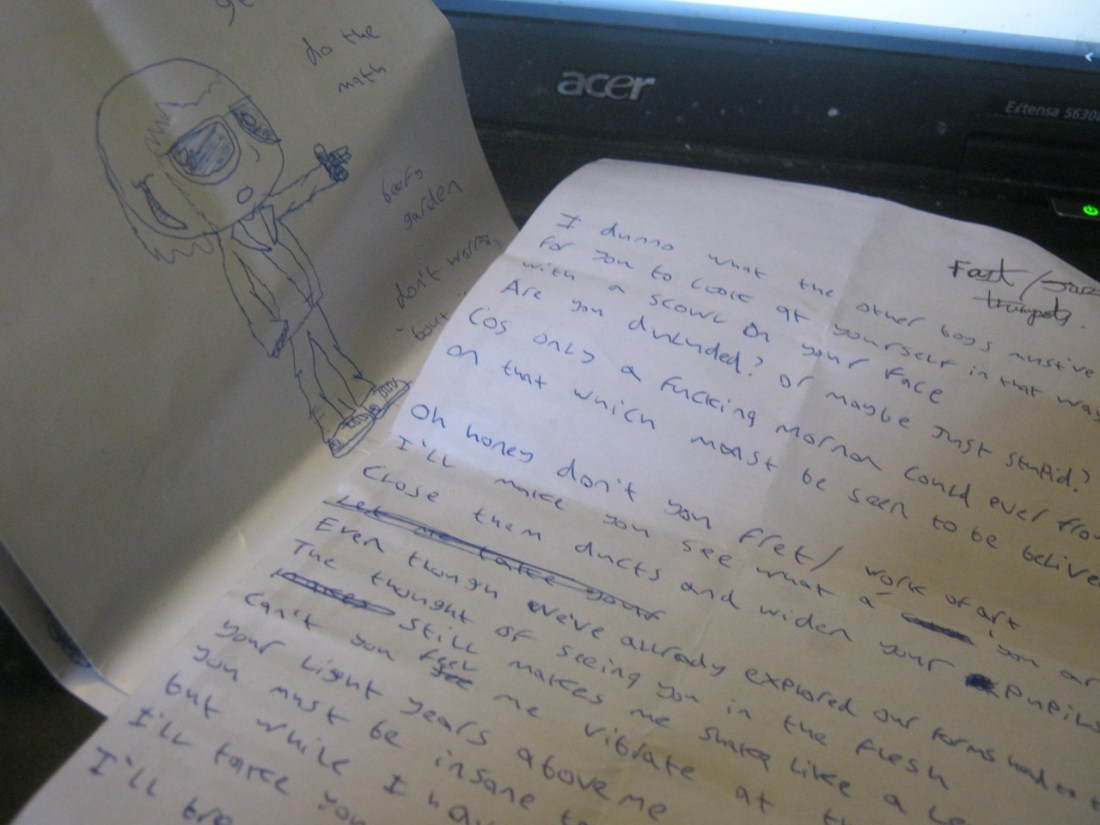 do the
math
garden
don't worry
'bout
acer
Extensa 5630
Fast /
trumpets.
I dunno what the other boys mustive
for you to look at yourself in that way
with a scowl on your face
Are you duluded? or maybe just stupid?
Cos only a fucking mornon could ever frow
on that which must be seen to be believe
Oh honey don't you fret/ work of art
I'll make you see what a you ar
Close them ducts and widen your pupils
Let me take your
Even though we've allready explored our forms
The thought of seeing you in the flesh
makes still makes me shake like a le
Can't you feel me vibrate at th
your light years above me
you must be insane to
but while I hav
I'll take you
I'll bro